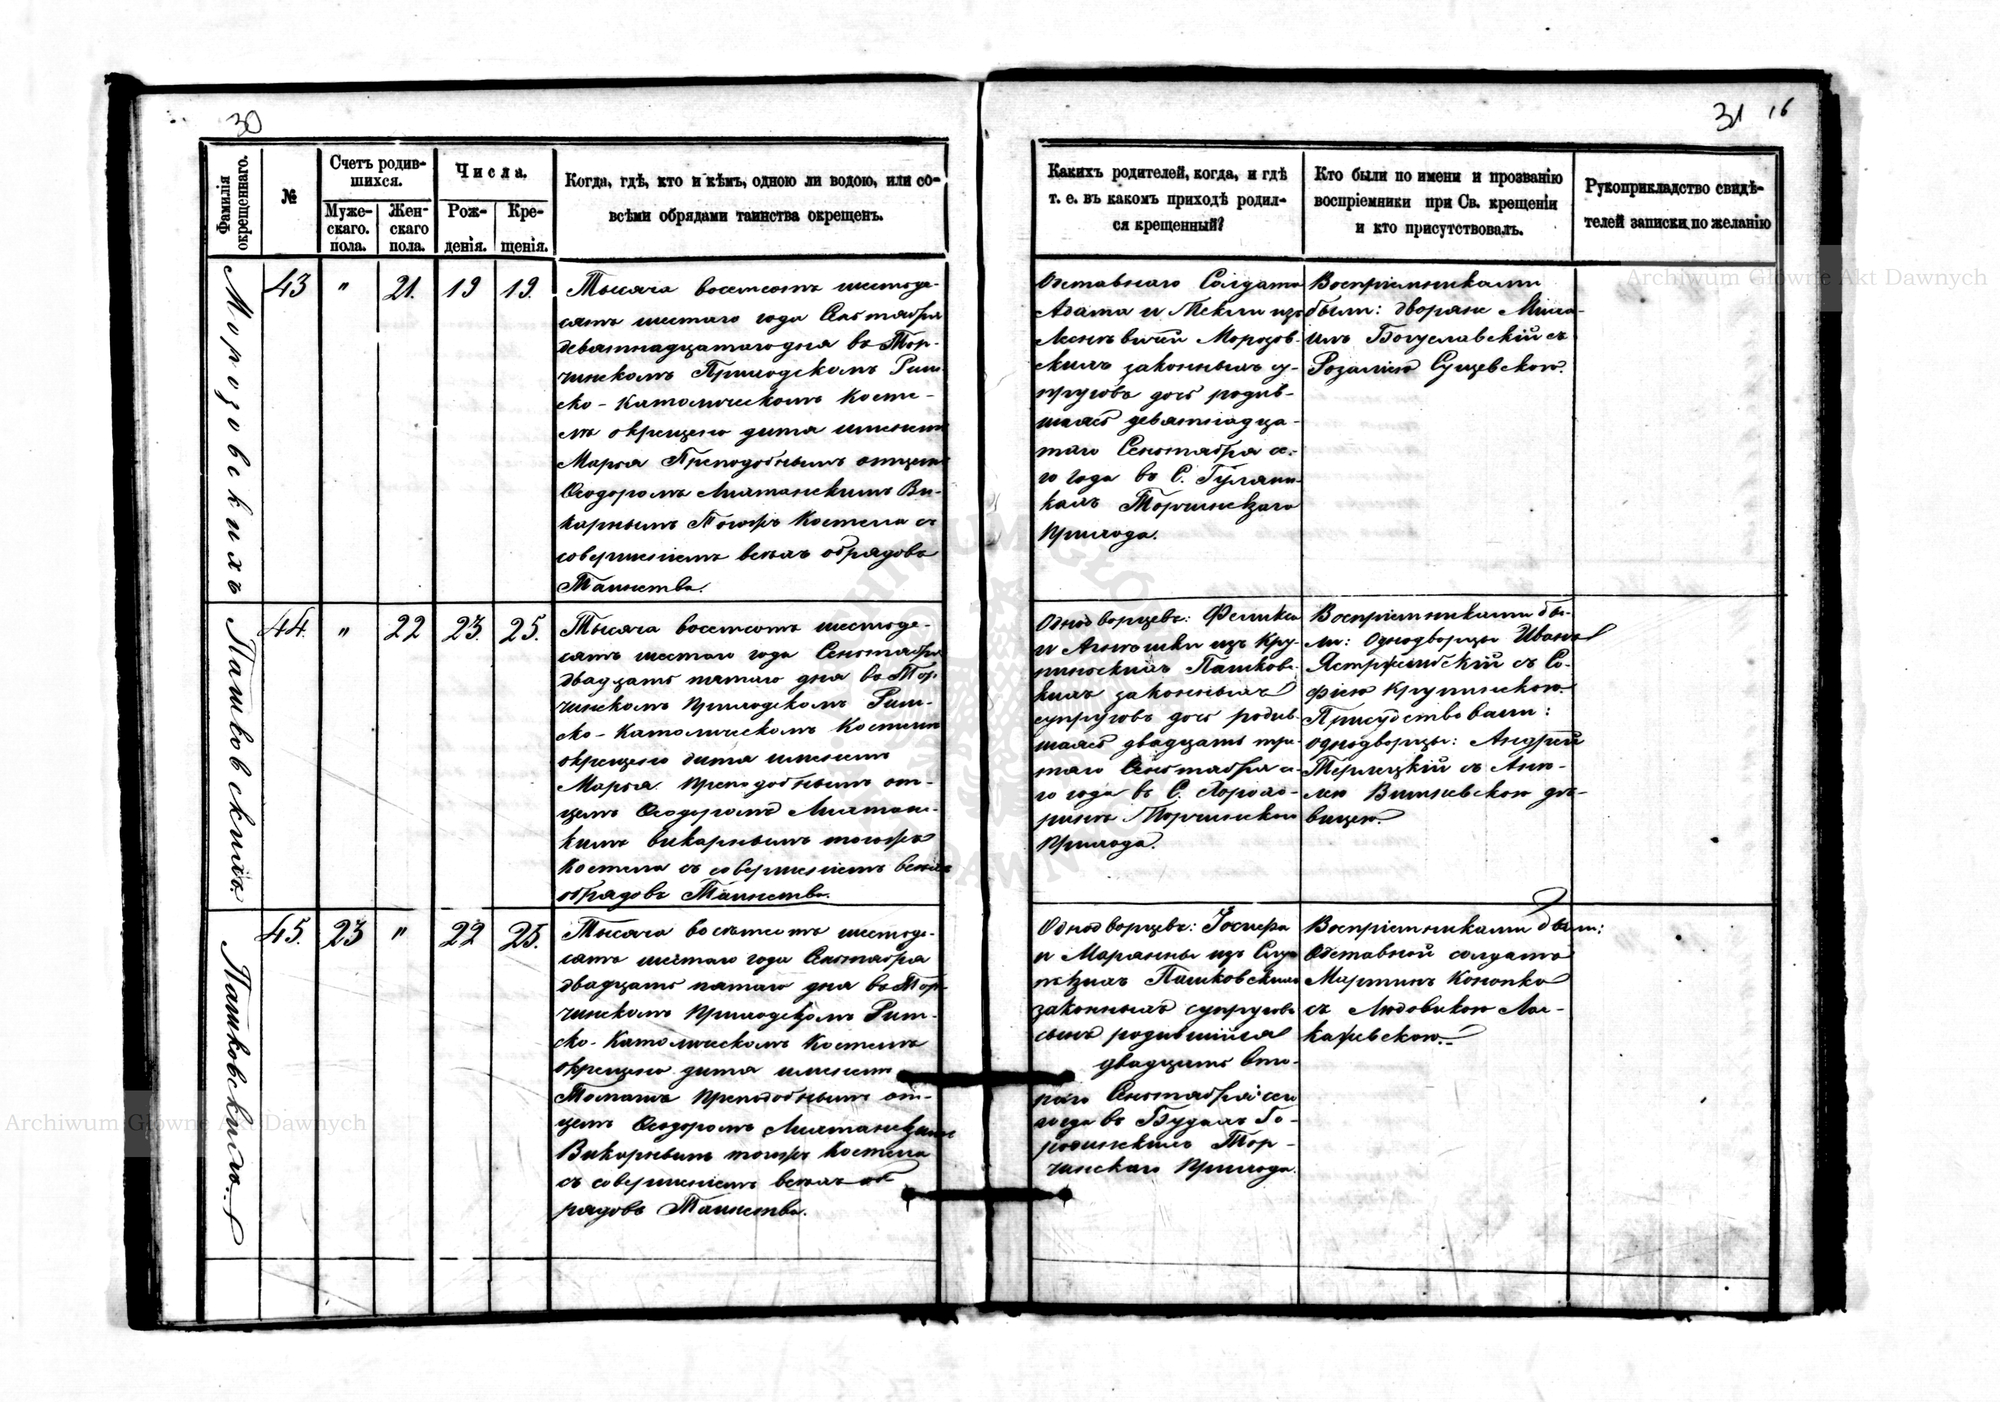 30
Фамилія
окрещеннаго.
№
Счетъ родив-
шихся.
Муже-
скаго.
пола.
Жен-
скаго
пола.
Числа.
Рож-
денія.
Кре-
щенія.
Когда, гдѣ, кто и кѣмъ, одною ли водою, или со-
всѣми обрядами таинства окрещенъ.
Морозовскихъ
43
"
21.
19
19.
Тысяча восемсотъ шестьде-
сятъ шестаго года Сентября
девятнадцатаго дня въ Тор-
чинскомъ Приходскомъ Рим-
ско-Католическомъ Косте-
лѣ окрещено дитя именемъ
Марья Преподобнымъ отцемъ
Ѳеодоромъ Викарнымъ
Тогожъ Костела съ
совершеніемъ всѣхъ обрядовъ
Таинства.
Пашковскихъ.
44.
"
22
23.
25.
Тысяча восемсотъ шестьде-
сятъ шестаго года Сентября
двадцать пятаго дня въ Тор-
чинскомъ Приходскомъ Рим-
ско-Католическомъ Костелѣ
окрещено дитя именемъ
Марья Преподобнымъ от-
цемъ Ѳеодоромъ
викарнымъ тогожъ
Костела съ совершеніемъ всѣхъ
обрядовъ Таинства.
Пашковскихъ.
45.
23
"
22
25.
Тысяча восемсотъ шестьде-
сятъ шестаго года Сентября
двадцать пятаго дня въ Тор-
чинскомъ Приходскомъ Рим-
ско-Католическомъ Костелѣ
окрещено дитя именемъ
Томашъ Преподобнымъ от-
цемъ Ѳеодоромъ
Викарнымъ тогожъ Костела
съ совершеніемъ всѣхъ об-
рядовъ Таинства.
31 16
Какихъ родителей, когда, и гдѣ
т. е. въ какомъ приходѣ родил-
ся крещенный?
Кто были по имени и прозванію
воспріемники при Св. крещеніи
и кто присутствовалъ.
Рукоприкладство свидѣ-
телей записки по желанію
Отставнаго Солдата
Адама и Теклы изъ
Морозов-
скихъ законныхъ су-
пруговъ дочь родив-
шаясъ девятнадца-
таго Сентября се-
го года въ С. Гуляни-
кахъ Торчинскаго
прихода.
Воспріемниками
были: дворяне Миха-
илъ Богуславскій съ
Розаліею Сущевскою.
Однодворцевъ: Феликса
и Антошки изъ Кру-
пинскихъ Пашковс-
кихъ законныхъ
супруговъ дочь родив-
шаясъ двадцать тре-
таго Сентября се-
го года въ С.
Торчинскаго
прихода.
Воспріемниками бы-
ли: Однодворцы Иванъ
Ястржембскій съ Со-
фіею Крупинскою.
Присудствовали:
однодворцы: Андрей
Терлецкій съ Анѣ-
лею Вишневскою дѣ-
вицею.
Однодворцевъ: Іосифа
и Марянны изъ
Пашковскихъ
законныхъ супруговъ
сынъ родившійся
двадцать вто-
раго Сентября сего
года въ Будахъ Го-
родинскихъ Тор-
чинскаго Прихода.
Воспріемниками были:
Отставной солдатъ
Мартинъ Конопка
съ Людовикою Лос-
кажевскою.
Archiwum Główne Akt Dawnych
Archiwum Główne Akt Dawnych